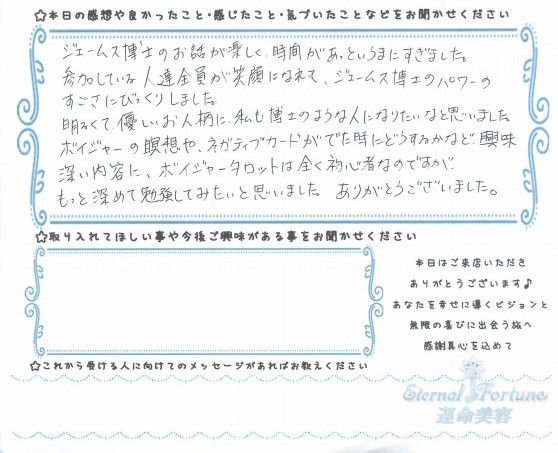 ☆本日の感想や良かったこと・感じたこと・気づいたことなどをお聞かせください
ジェームス博士のお話が楽しく、時間があっというまにすぎました。
参加している人達全員が笑顔になれて、ジェームス博士のパワーの
すごさにびっくりしました。
明るくて優しいお人柄に、私も博士のような人になりたいなと思いました
ボイジャーの瞑想や、ネガティブカードがでた時にどうするかなど、興味
深い内容に、ボイジャータロットは全く初心者なのですが、
もっと深めて勉強してみたいと思いました。ありがとうございました。
☆取り入れてほしい事や今後ご興味がある事をお聞かせください
本日はご来店いただき
ありがとうございます♪
あなたを幸せに導くビジョンと
無限の喜びに出会う旅へ
感謝真心を込めて
☆これから受ける人に向けてのメッセージがあればお教えください
Eternal Fortune
運命美容